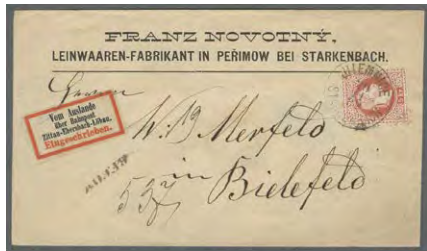 FRANZ NOVOTNÝ,
LEINWAAREN-FABRIKANT IN PEŘIMOW BEI STARKENBACH.
Herren
Vom Auslande
über Bahnpost
Zittau-Ebersbach-Löbau.
Eingeschrieben.
Merfeld
in
Bielefeld
537